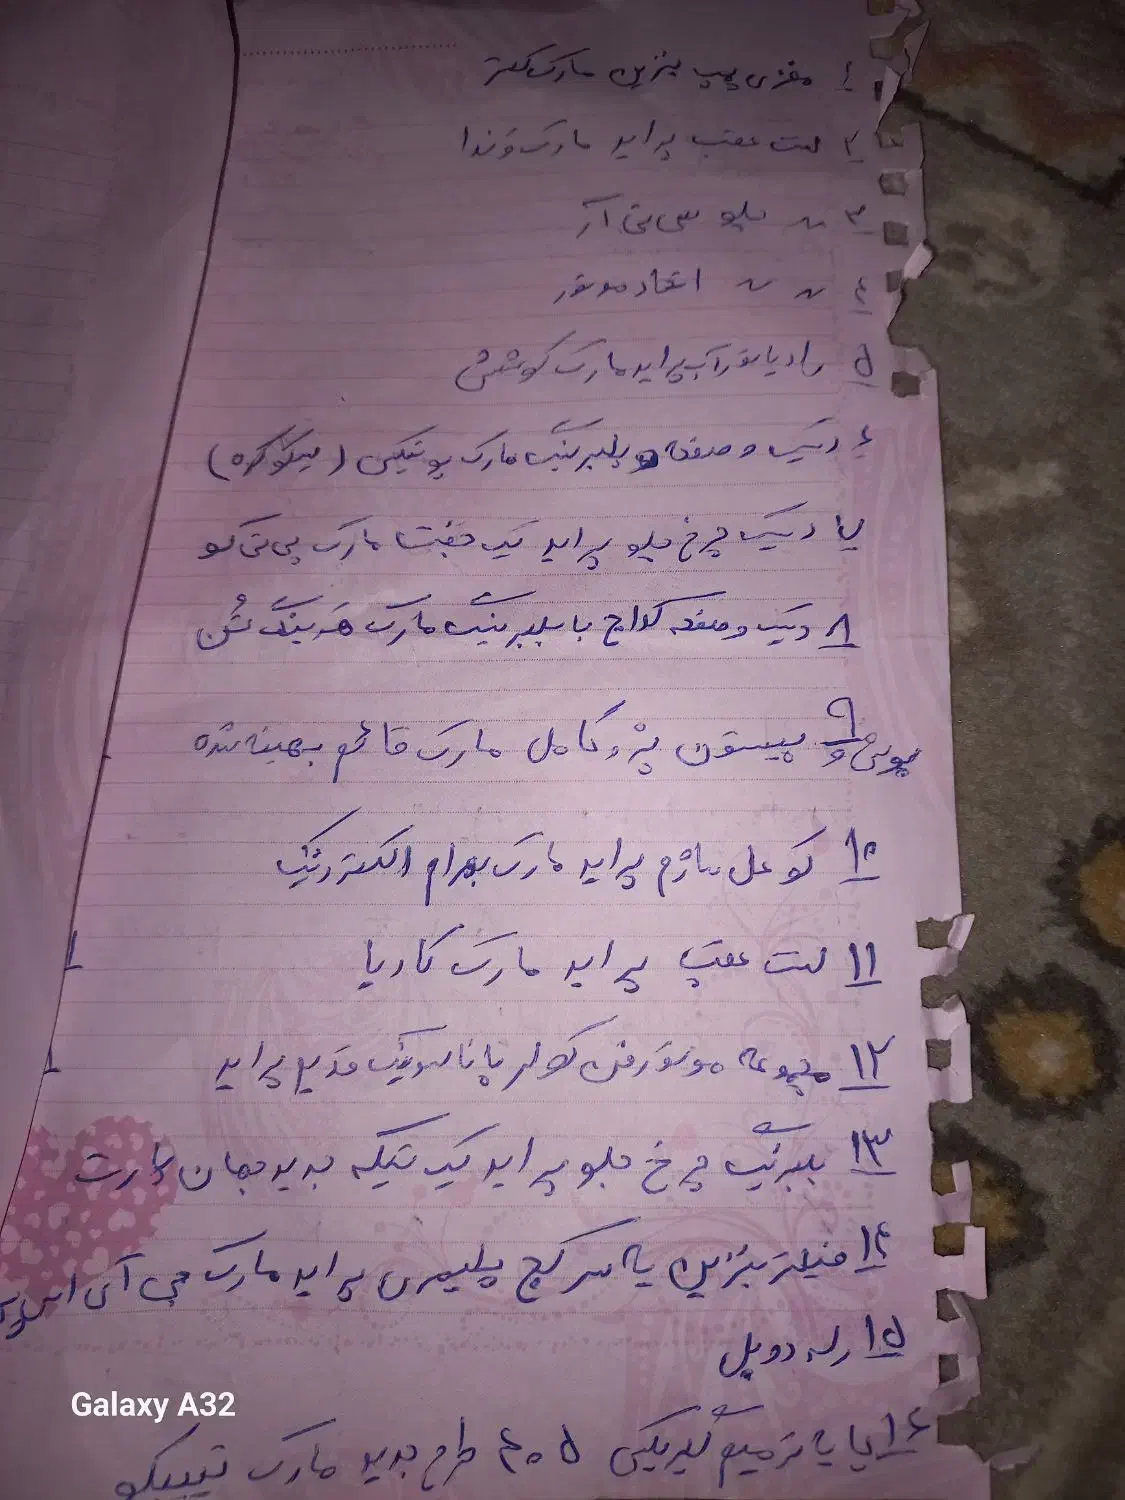 ۱ مغزی پمپ بنزین مارک گستر
۲ لنت عقب پراید مارک وندا
۳ ~ جلو سی تی آر
۴ ~ ~ اتحاد موتور
۵ رادیاتور آب پراید مارک کوشش
۶ دیسک و صفحه و بلبرینگ مارک یونیکی (سکو کره)
۷ دیسک چرخ جلو پراید یک جفت مارک پی تی کو
۸ دیسک و صفحه کلاچ با بلبرینگ مارک هَرینگتُن
۹ بوش و پیستون پژو کامل مارک قائم بهینه شده
۱۰ کوئل سازم پراید مارک بهرام الکترونیک
۱۱ لنت عقب پراید مارک کادیا
۱۲ مجموعه موتور فن کولر پاناسونیک قدیم پراید
۱۳ بلبرینگ چرخ جلو پراید یک تیکه جدید جهان پارت
۱۴ فیلتر بنزین پا سر کج پلیمری پراید مارک جی آی اس پی
۱۵ رله دوبل
۱۶ گیربکس ۴۰۵ طرح جدید مارک
Galaxy A32